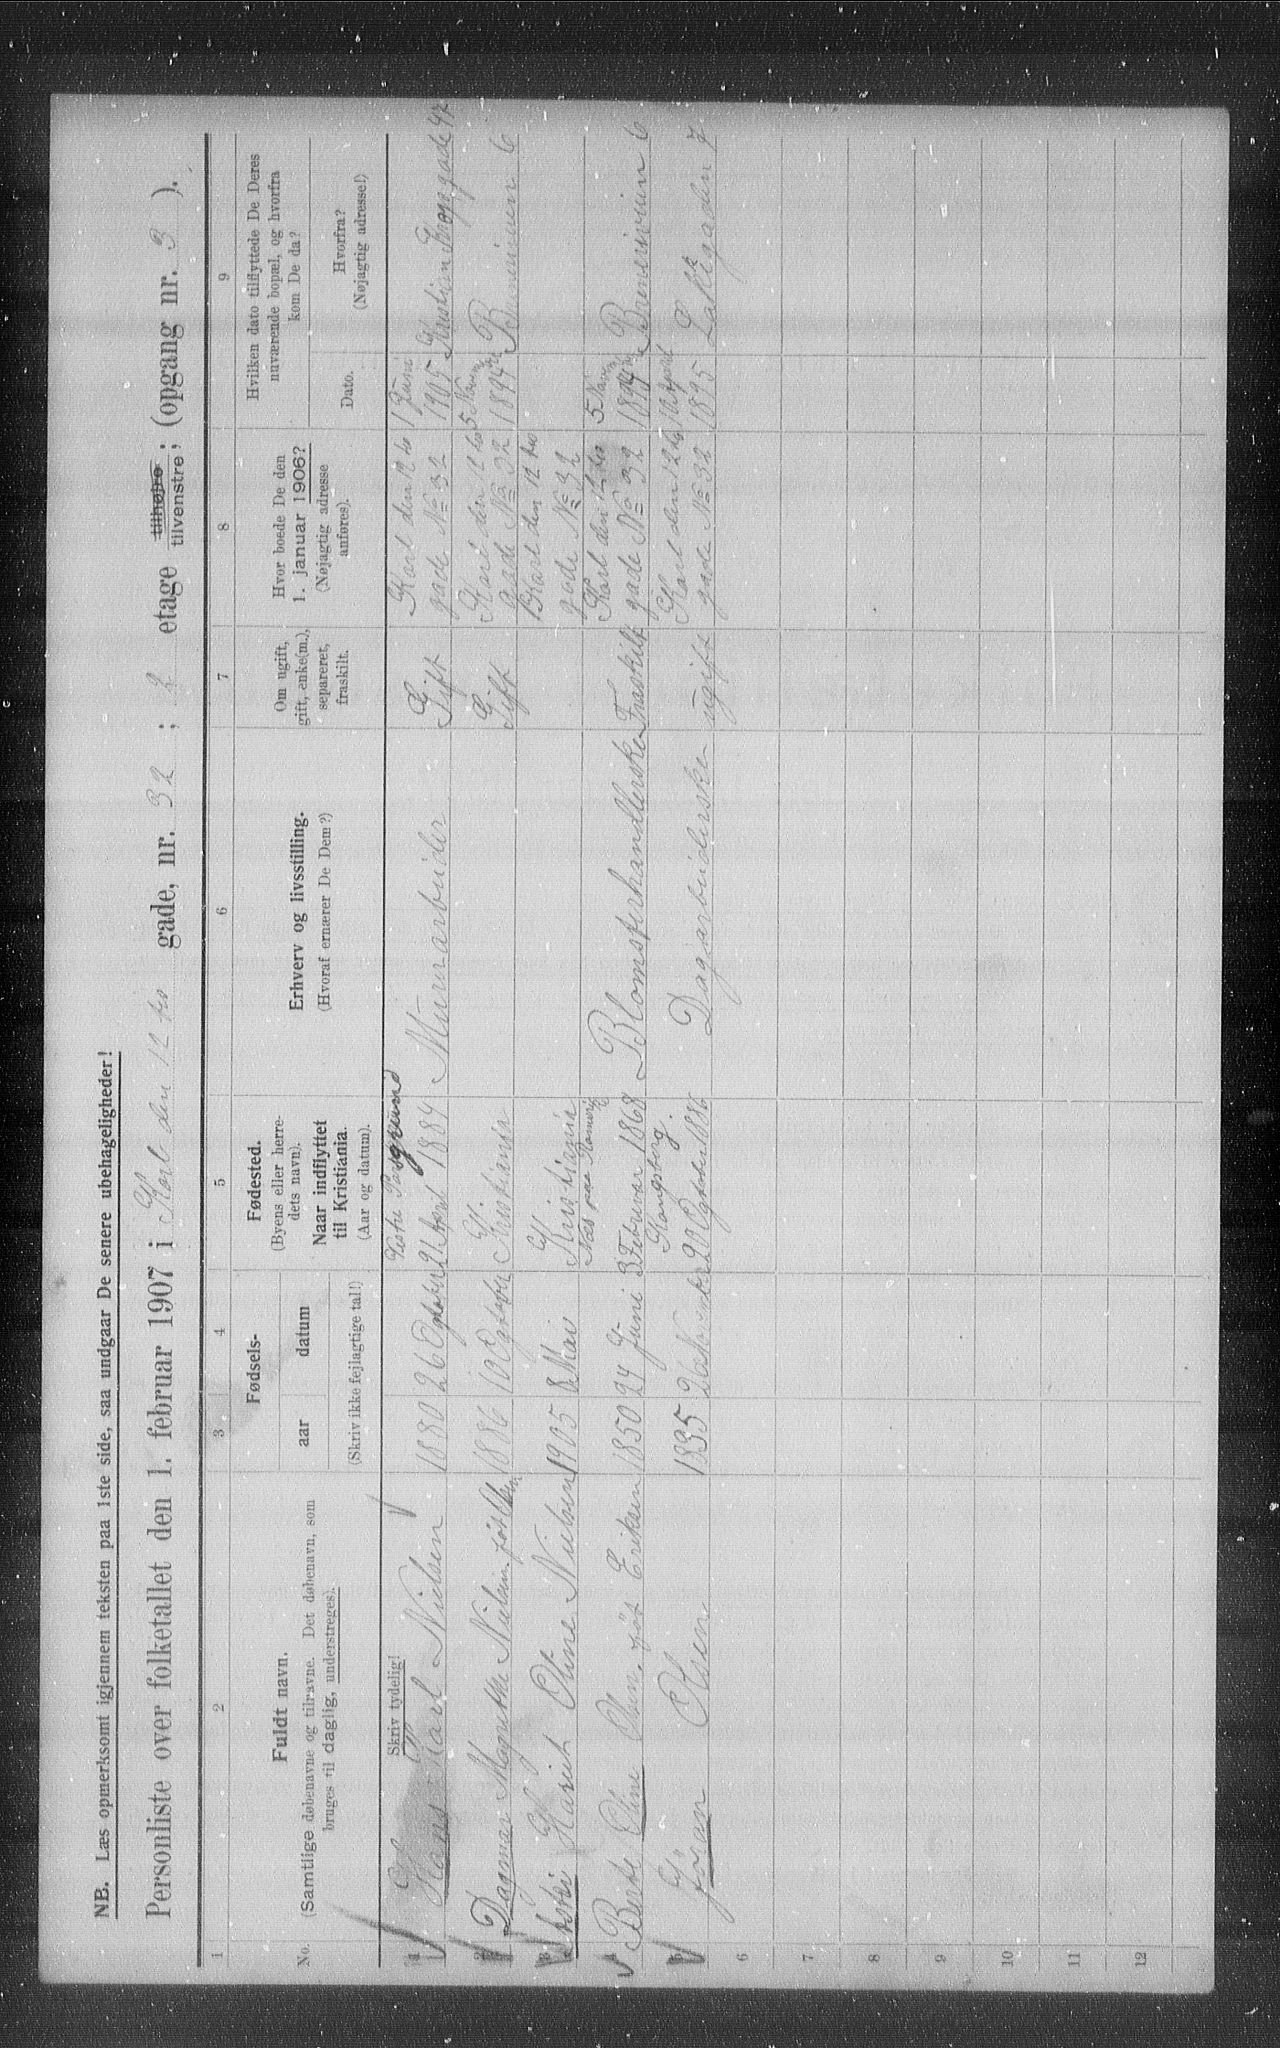 NB. Læs opmerksomt igjennem teksten paa 1ste side, saa undgaar De senere ubehageligheder!
Personliste over folketallet den 1. februar 1907 i Karl den 12 tes gade, nr. 32 ; 2 etage tilhøjre tilvenstre; (opgang nr. 3 ).
1 2 3 4 5 6 7 8 9
No.
Fuldt navn.
(Samtlige døbenavne og tilnavne. Det døbenavn, som
bruges til daglig, understreges).
Skriv tydelig!
Fødsels-
aar datum
(Skriv ikke fejlagtige tal!)
Fødested.
(Byens eller herre-
dets navn).
Naar indflyttet
til Kristiania.
(Aar og datum).
Erhverv og livsstilling.
(Hvoraf ernærer De Dem?)
Om ugift,
gift, enke(m.),
separeret,
fraskilt.
Hvor boede De den
1. januar 1906?
(Nøjagtig adresse
anføres).
Hvilken dato tilflyttede De Deres
nuværende bopæl, og hvorfra
kom De da?
Dato.
Hvorfra?
(Nøjagtig adresse!)
1 Hans Karl Nielsen 1880 26 Vestre 21 April 1884 Murarbeider Gift Karl den 12 tes gade No 32 1 Juni 1905 Kristian gade 42
2 Dagmar Nielsen født 1886 10 Kristiania Gift Karl den 12 tes gade No 32 5 1894 6
3 Otine Nielsen 1905 8 Mai Kristiania Karl den 12 tes gade No 32
4 Berte Oline Olsen født Eriksen 1850 24 Juni Næs paa Romerig 3 Februar 1868 Blomsterhandlerske Fraskilt Karl den 12 tes gade No 32 5 1894 6
5 Olsen 1835 Kongsberg 20 1886 Dagarbeiderske ugift Karl den 12 tes gade No 32 April 1895 Lakkegaden 7
6
7
8
9
10
11
12